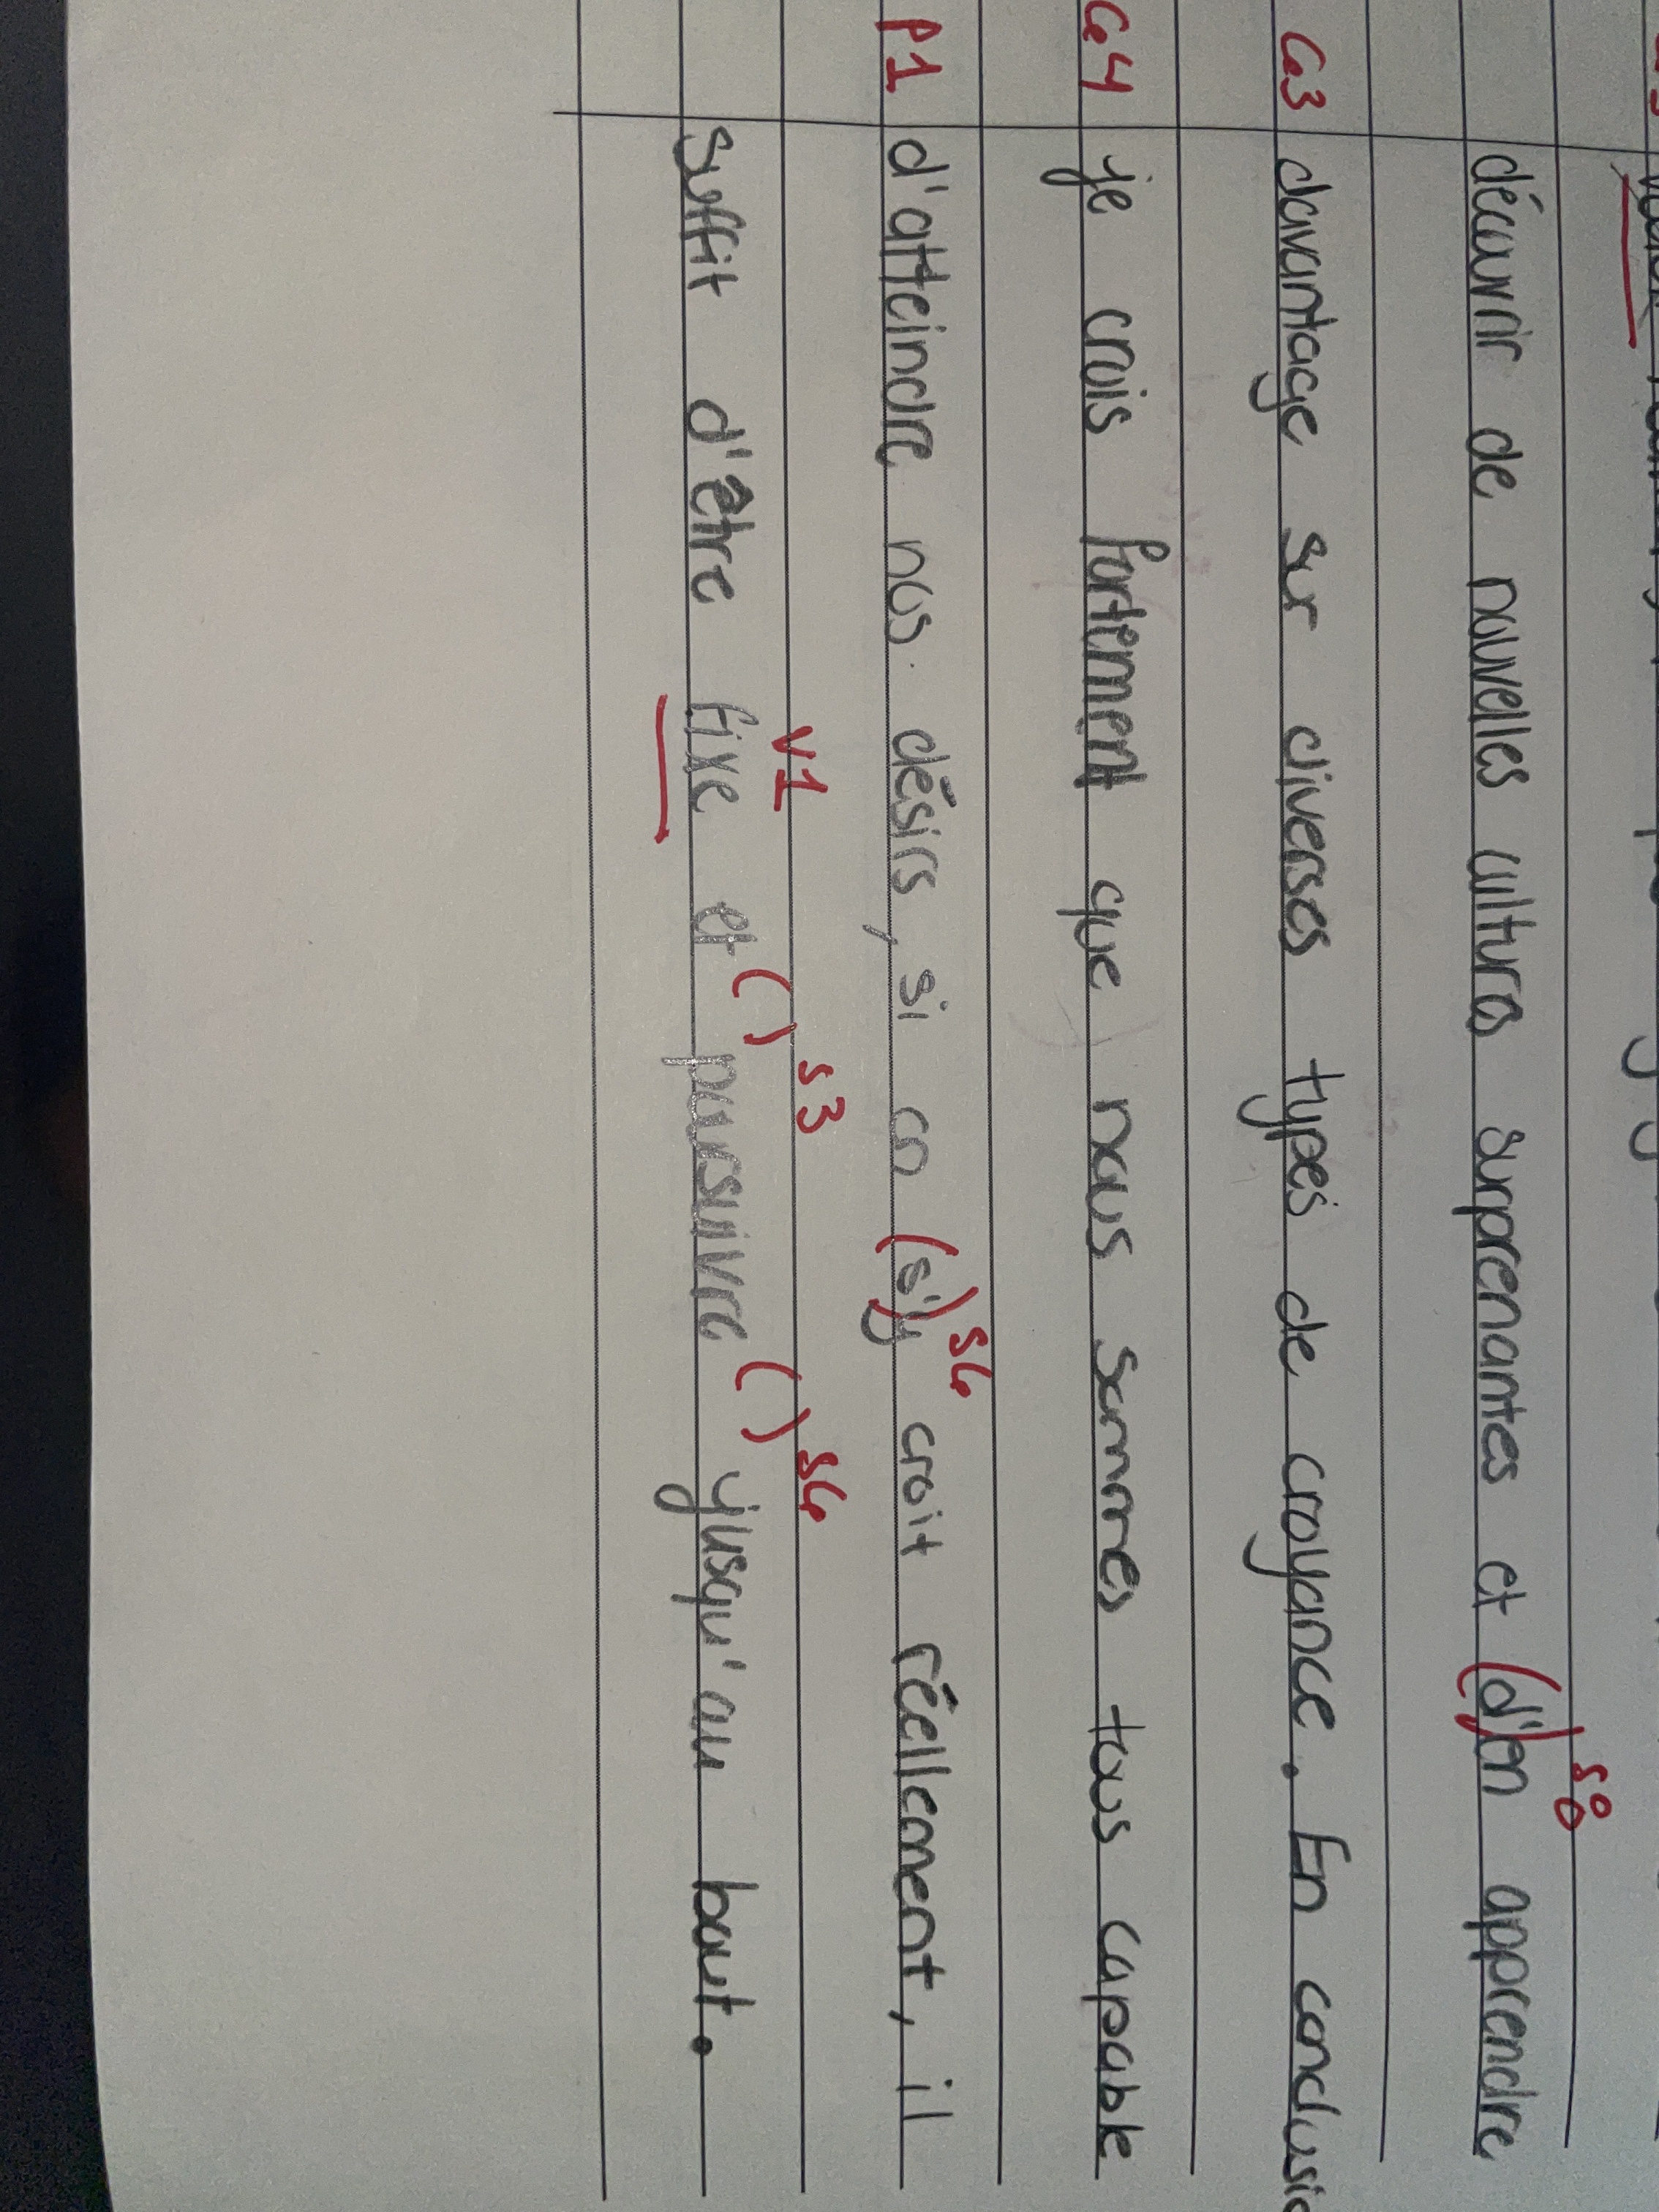 découvrir de nouvelles cultures surprenantes et (d')en apprendre S8
G3 davantage sur diverses types de croyance. En conclusi
G4 je crois fortement que nous sommes tous capable
P1 d'atteindre nos désirs, si on (s')y croit réellement, il S6
suffit d'être fixe et ( ) poursuivre ( ) jusqu'au bout. V1 S3 S6